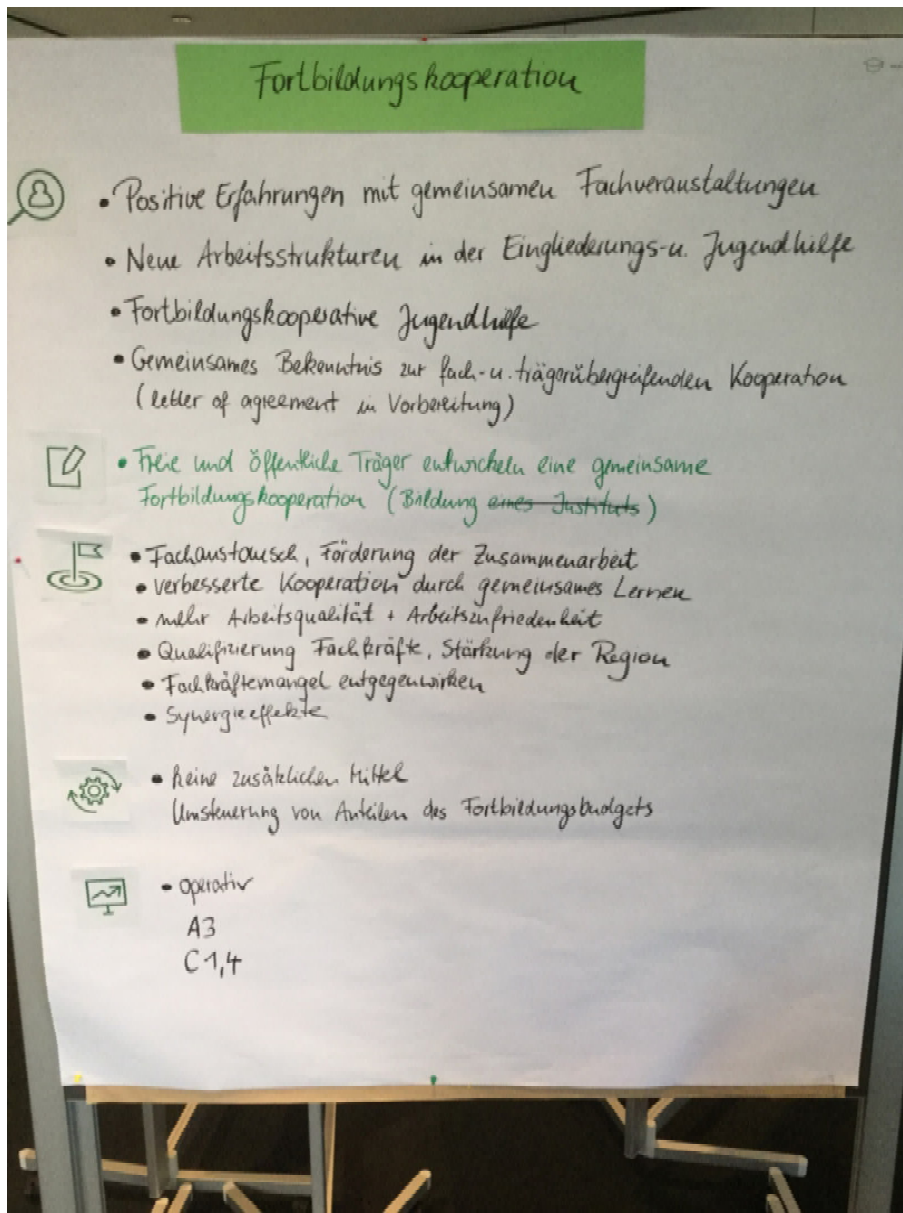 Fortbildungskooperation
• Positive Erfahrungen mit gemeinsamen Fachveranstaltungen
• Neue Arbeitsstrukturen in der Eingliederungs-u. Jugendhilfe
• Fortbildungskooperative Jugendhilfe
• Gemeinsames Bekenntnis zur fach-u. trägerübergreifenden Kooperation
(letter of agreement in Vorbereitung)
• Freie und öffentliche Träger entwickeln eine gemeinsame
Fortbildungskooperation (Bildung eines Instituts)
• Fachaustausch, Förderung der Zusammenarbeit
• verbesserte Kooperation durch gemeinsames Lernen
• mehr Arbeitsqualität + Arbeitszufriedenheit
• Qualifizierung Fachkräfte, Stärkung der Region
• Fachkräftemangel entgegenwirken
• Synergieeffekte
• keine zusätzlichen Mittel
Umsteuerung von Anteilen des Fortbildungsbudgets
• operativ
A3
C1,4